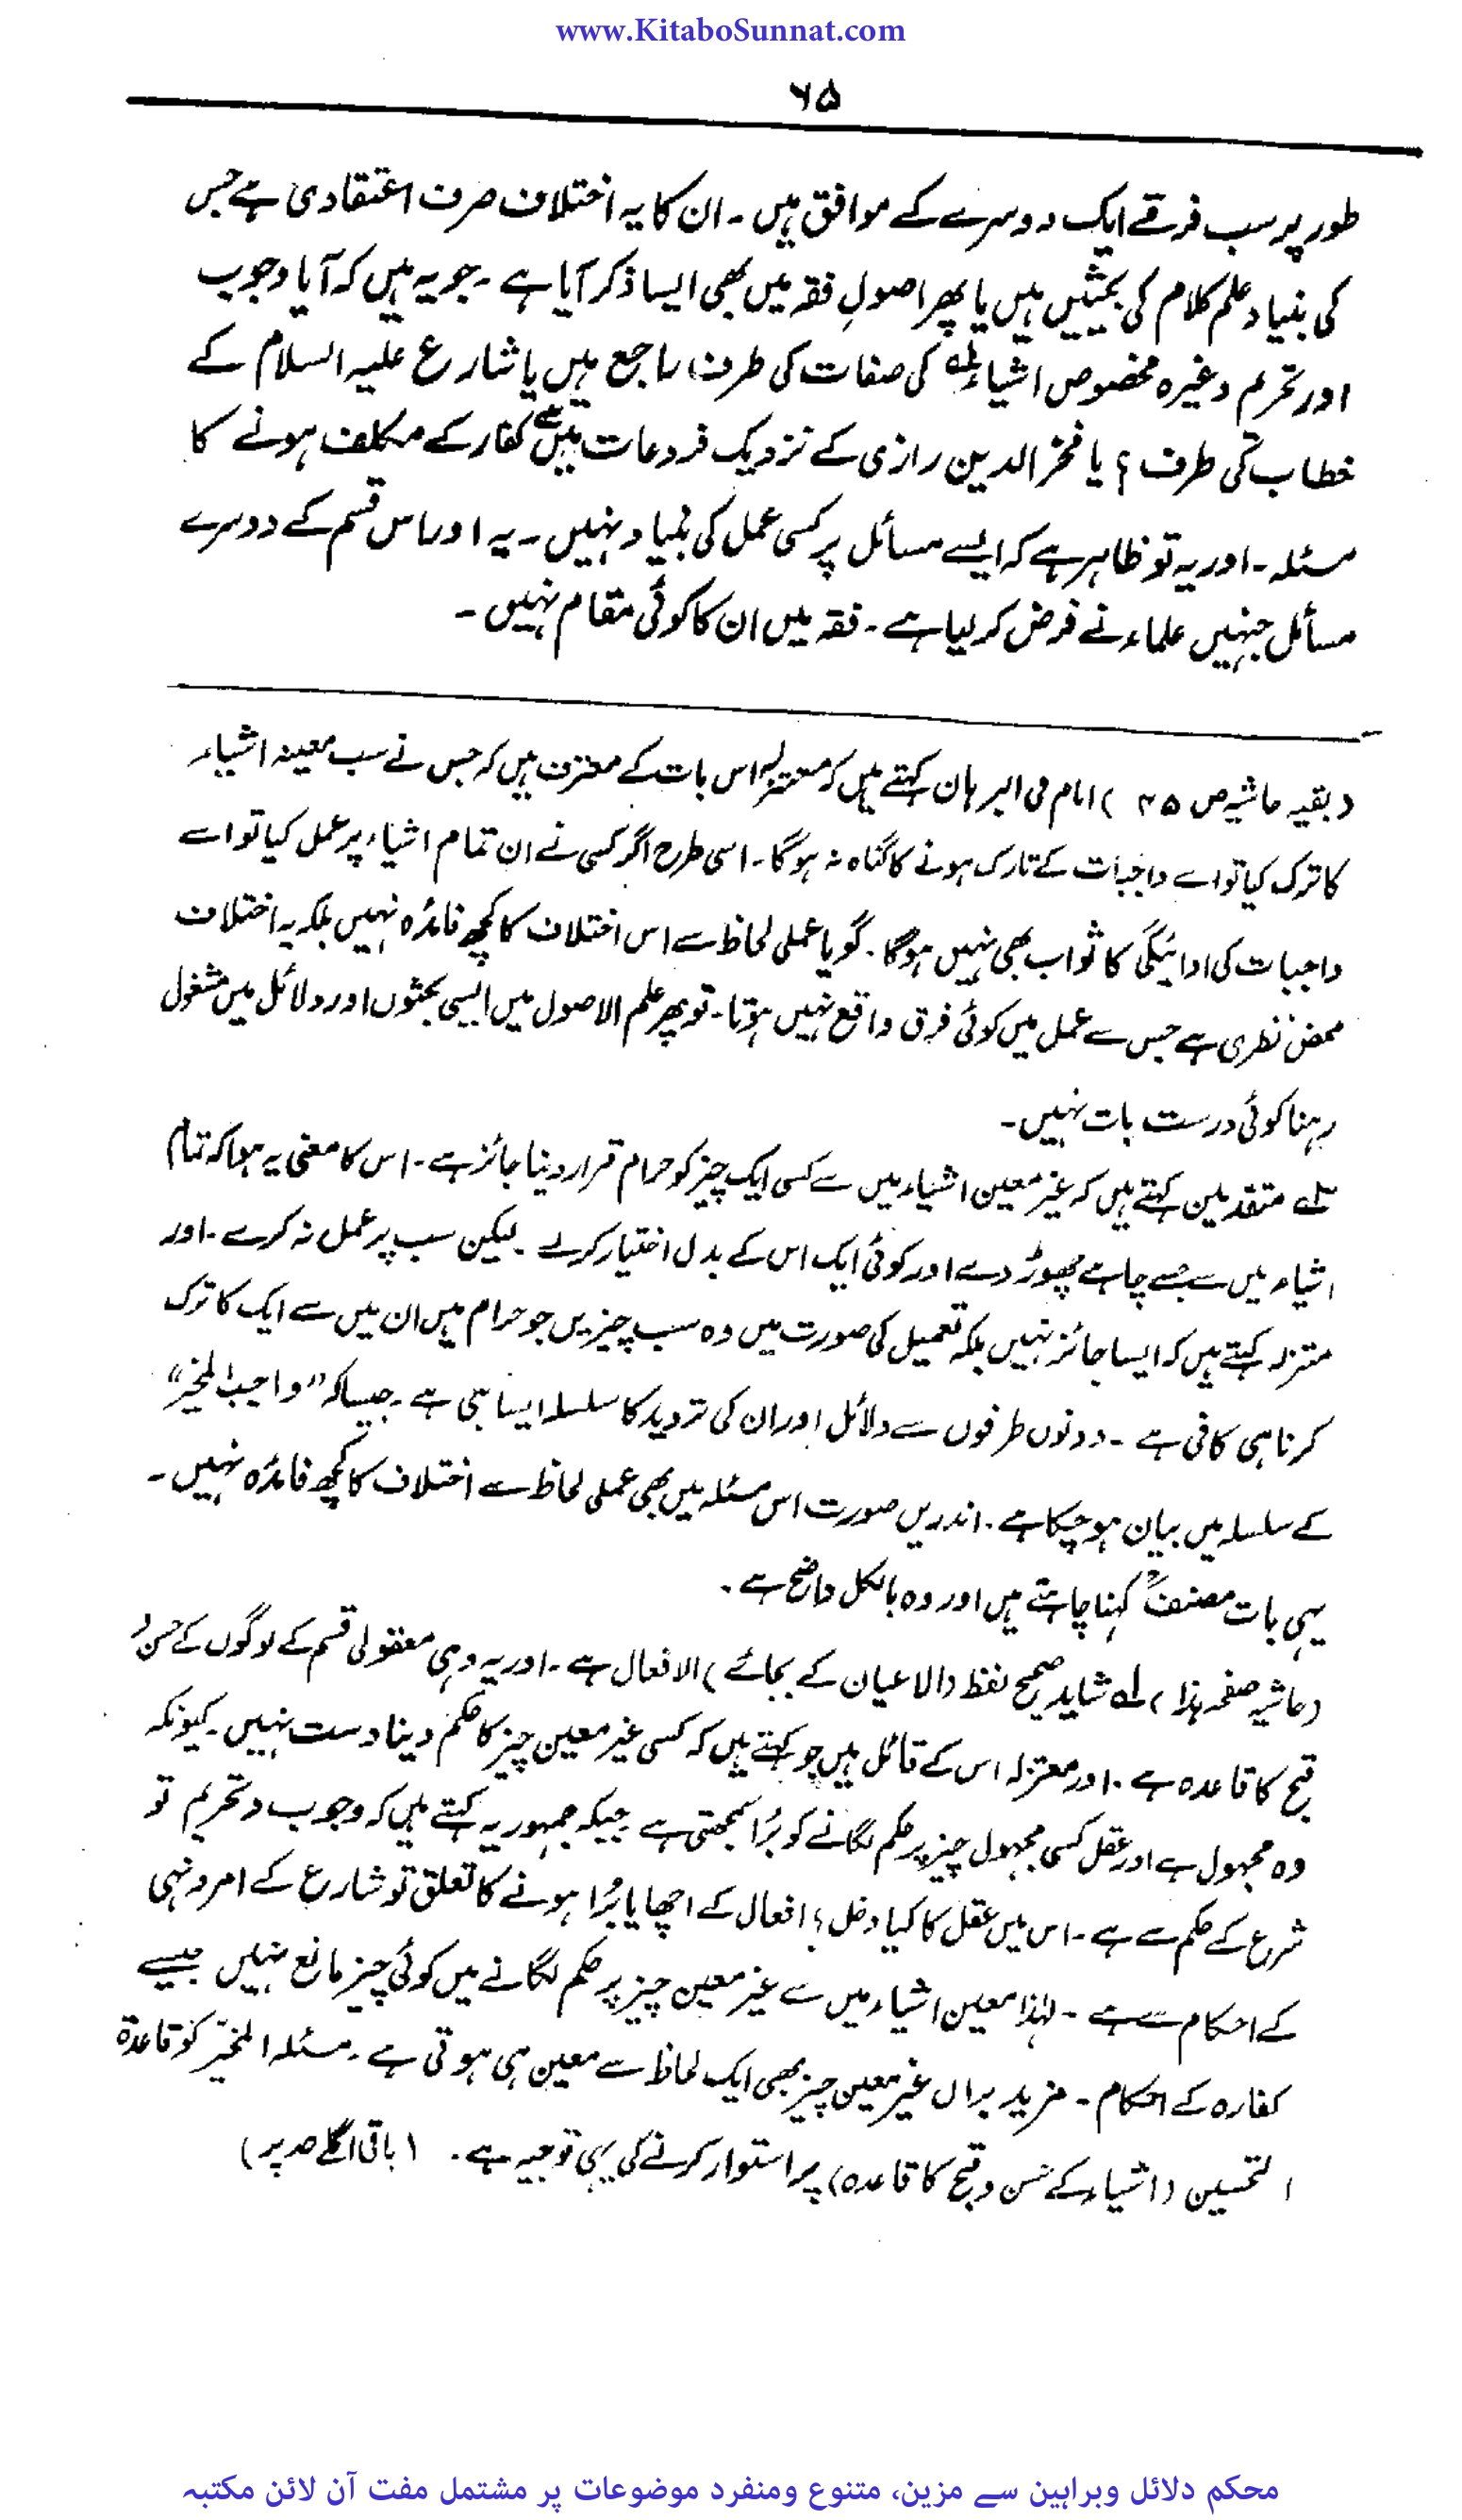 www.KitaboSunnat.com
۶۵
طور پر سب فرقے ایک دوسرے کے موافق ہیں ۔ ان کا یہ اختلاف صرف اعتقادی ہے جس
کی بنیاد علم کلام کی بحثیں ہیں یا پھر اصولِ فقہ میں بھی ایسا ذکر آیا ہے ۔ جو یہ ہیں کہ آیا وجوب
اور تحریم وغیرہ مخصوص اشیاء لہ کی صفات کی طرف راجع ہیں یا شارع علیہ السلام کے
خطاب کی طرف ؟ یا فخر الدین رازی کے نزدیک فروعات میں کفار کے مکلف ہونے کا
مسئلہ ۔ اور یہ تو ظاہر ہے کہ ایسے مسائل پر کسی عمل کی بنیاد نہیں ۔ یہ اور اس قسم کے دوسرے
مسائل جنہیں علماء نے فرض کر لیا ہے ۔ فقہ میں ان کا کوئی مقام نہیں ۔
(بقیہ حاشیہ ص ۴۵) امام فی البرہان کہتے ہیں کہ معتزلہ اس بات کے معترف ہیں کہ جس نے سب معینہ اشیاء
کا ترک کیا تو اسے واجبات کے تارک ہونے کا گناہ نہ ہوگا ۔ اسی طرح اگر کسی نے ان تمام اشیاء پر عمل کیا تو اسے
واجبات کی ادائیگی کا ثواب بھی نہیں ہوگا ۔ گویا عملی لحاظ سے اس اختلاف کا کچھ فائدہ نہیں بلکہ یہ اختلاف
محض نظری ہے جس سے عمل میں کوئی فرق واقع نہیں ہوتا ۔ تو پھر علم الاصول میں ایسی بحثوں اور دلائل میں مشغول
رہنا کوئی درست بات نہیں ۔
متقدمین کہتے ہیں کہ غیر معین اشیاء میں سے کسی ایک چیز کو حرام قرار دینا جائز ہے ۔ اس کا معنی یہ ہوا کہ تمام
اشیاء میں سے جسے چاہے چھوڑ دے اور کوئی ایک اس کے بدل اختیار کر لے ۔ لیکن سب پر عمل نہ کرے ۔ اور
متزلہ کہتے ہیں کہ ایسا جائز نہیں بلکہ تعمیل کی صورت میں وہ سب چیزیں جو حرام ہیں ان میں سے ایک کا ترک
کرنا ہی کافی ہے ۔ دونوں طرفوں سے دلائل اور ان کی تردید کا سلسلہ ایسا ہی ہے ۔ جیسا کہ ”واجب المخیر“
کے سلسلہ میں بیان ہو چکا ہے ۔ اندریں صورت اس مسئلہ میں بھی عملی لحاظ سے اختلاف کا کچھ فائدہ نہیں ۔
یہی بات مصنفؒ کہنا چاہتے ہیں اور وہ بالکل واضح ہے ۔
(حاشیہ صفحہ ہذا) لہ شاید صحیح لفظ (الاعیان کے بجائے) الافعال ہے ۔ اور یہ وہی معقولی قسم کے لوگوں کے حسن و
قبح کا قاعدہ ہے ۔ اور معتزلہ اس کے قائل ہیں جو کہتے ہیں کہ کسی غیر معین چیز کا حکم دینا دست نہیں ۔ کیونکہ
وہ مجہول ہے اور عقل کسی مجہول چیز پر حکم لگانے کو بُرا سمجھتی ہے جبکہ جمہور یہ کہتے ہیں کہ وجوب و تحریم تو
شرع کے حکم سے ہے ۔ اس میں عقل کا کیا دخل ؟ افعال کے اچھا یا بُرا ہونے کا تعلق تو شارع کے امر و نہی
کے احکام سے ہے ۔ لہٰذا معین اشیاء میں سے غیر معین چیز پر حکم لگانے میں کوئی چیز مانع نہیں جیسے
کفارہ کے احکام ۔ مزید براں غیر معین چیز بھی ایک لحاظ سے معین ہی ہوتی ہے ۔ مسئلہ المخیّر کو قاعدۃ
التحسین (اشیاء کے حسن و قبح کا قاعدہ) پر استوار کرنے کی یہی توجیہ ہے ۔ (باقی اگلے صہ پر)
محکم دلائل وبراہین سے مزین، متنوع ومنفرد موضوعات پر مشتمل مفت آن لائن مکتبہ